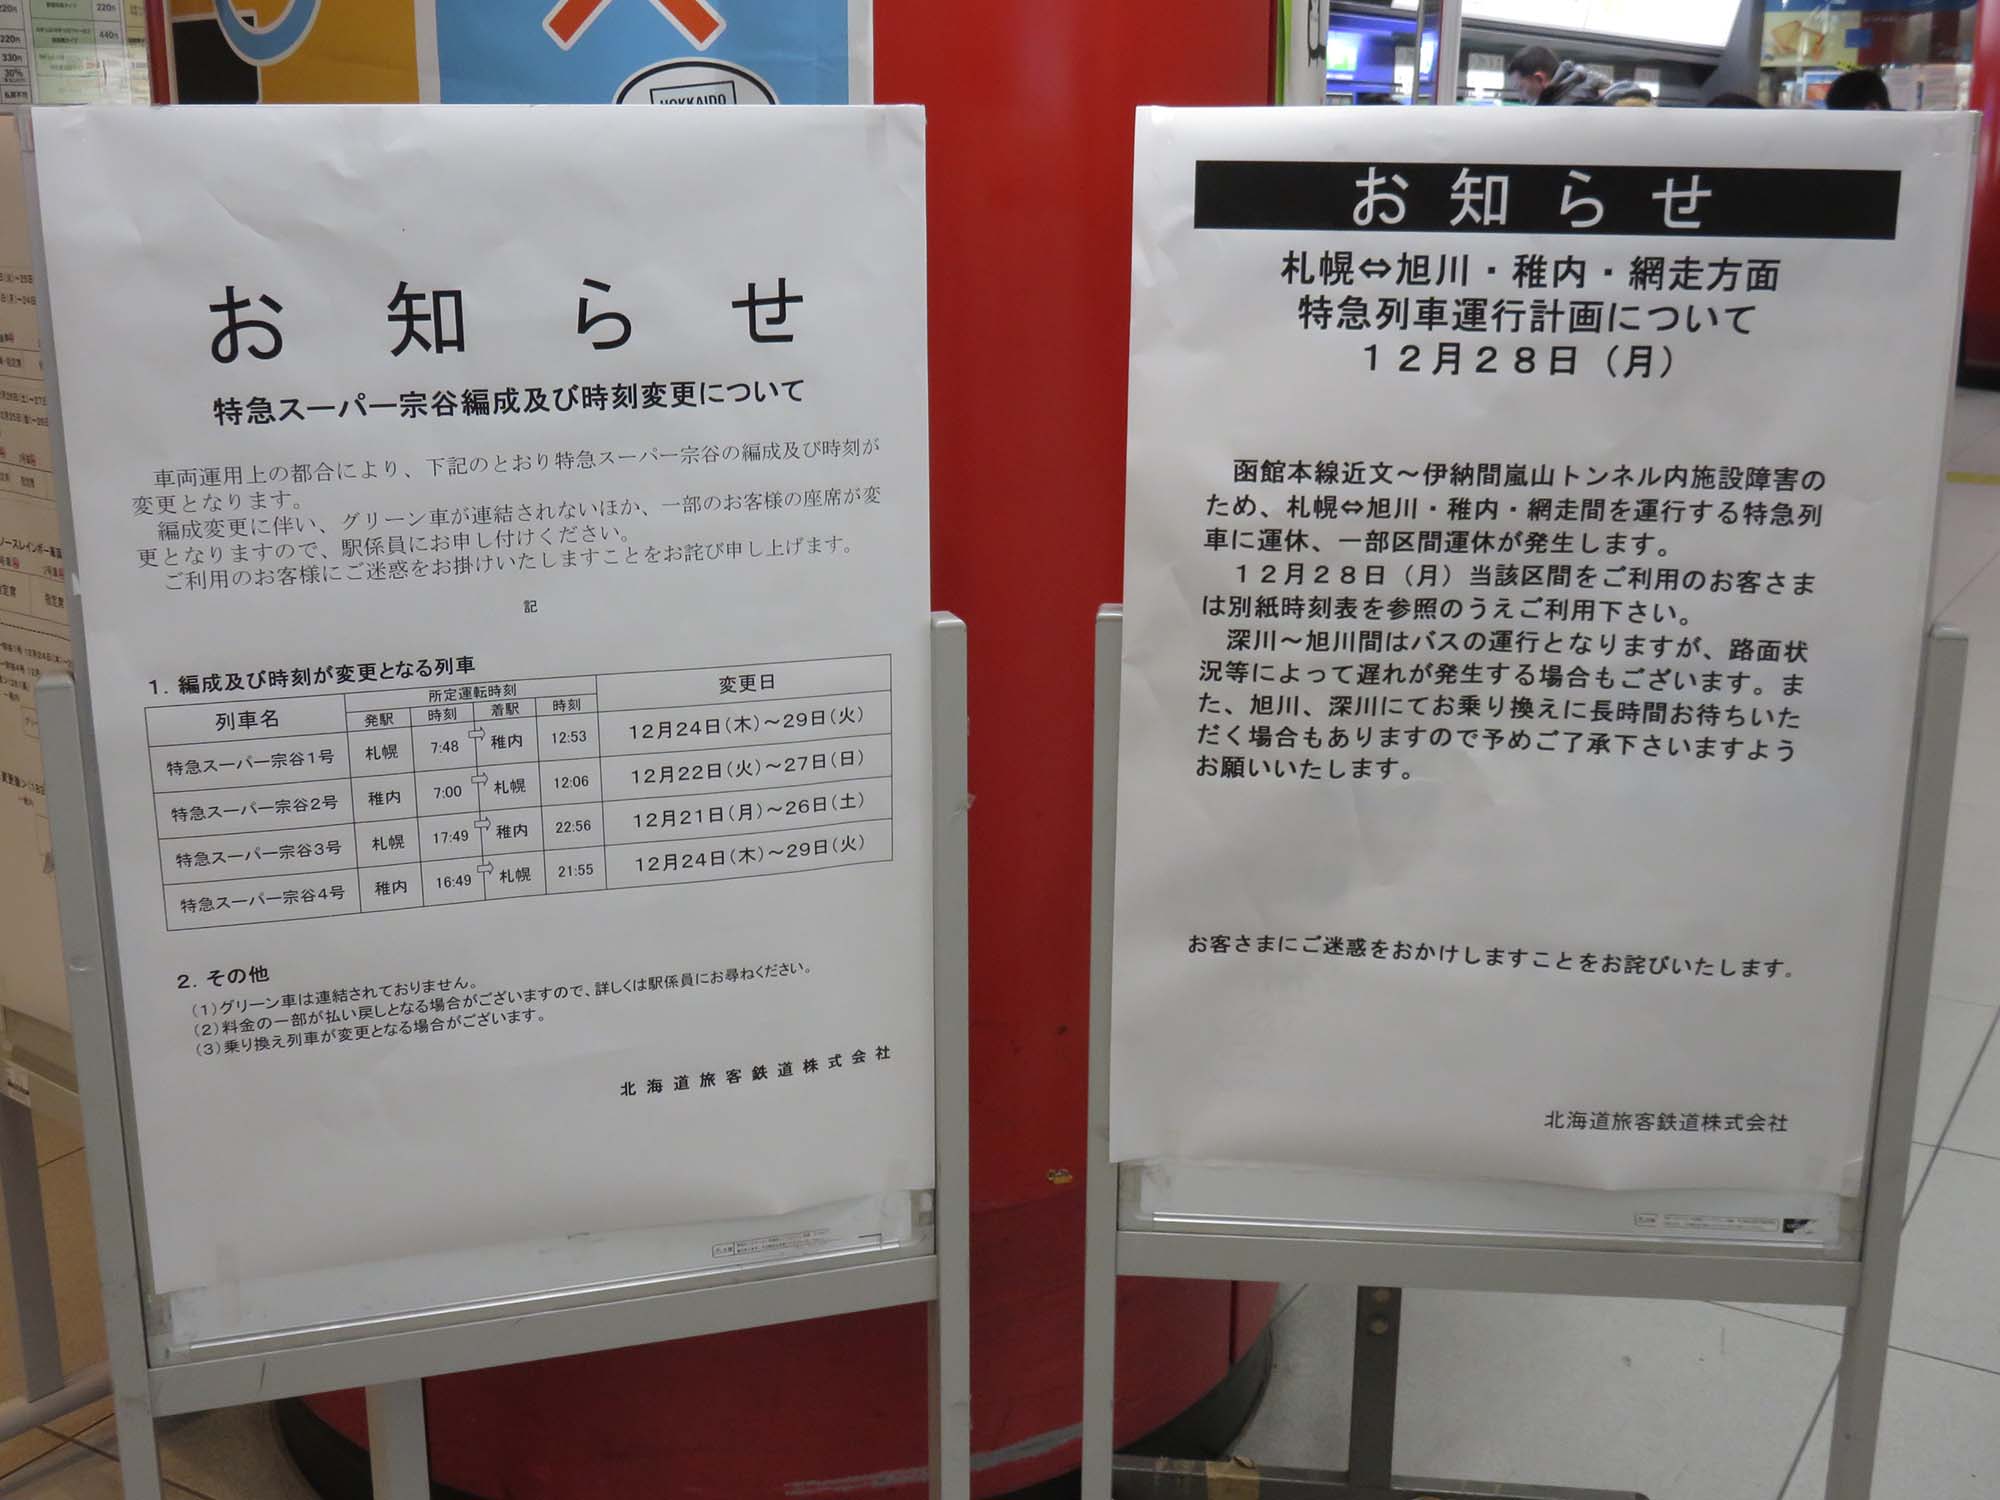 HOKKAIDO
お知らせ
特急スーパー宗谷編成及び時刻変更について
車両運用上の都合により、下記のとおり特急スーパー宗谷の編成及び時刻が
変更となります。
編成変更に伴い、グリーン車が連結されないほか、一部のお客様の座席が変
更となりますので、駅係員にお申し付けください。
ご利用のお客様にご迷惑をお掛けいたしますことをお詫び申し上げます。
記
1．編成及び時刻が変更となる列車
列車名 所定運転時刻 変更日
発駅 時刻 着駅 時刻
特急スーパー宗谷1号 札幌 7:48 ⇨ 稚内 12:53 12月24日（木）～29日（火）
特急スーパー宗谷2号 稚内 7:00 ⇨ 札幌 12:06 12月22日（火）～27日（日）
特急スーパー宗谷3号 札幌 17:49 ⇨ 稚内 22:56 12月21日（月）～26日（土）
特急スーパー宗谷4号 稚内 16:49 ⇨ 札幌 21:55 12月24日（木）～29日（火）
2．その他
（1）グリーン車は連結されておりません。
（2）料金の一部が払い戻しとなる場合がございますので、詳しくは駅係員にお尋ねください。
（3）乗り換え列車が変更となる場合がございます。
北海道旅客鉄道株式会社
お知らせ
札幌⇔旭川・稚内・網走方面
特急列車運行計画について
１２月２８日（月）
函館本線近文～伊納間嵐山トンネル内施設障害の
ため、札幌⇔旭川・稚内・網走間を運行する特急列
車に運休、一部区間運休が発生します。
１２月２８日（月）当該区間をご利用のお客さま
は別紙時刻表を参照のうえご利用下さい。
深川～旭川間はバスの運行となりますが、路面状
況等によって遅れが発生する場合もございます。ま
た、旭川、深川にてお乗り換えに長時間お待ちいた
だく場合もありますので予めご了承下さいますよう
お願いいたします。
お客さまにご迷惑をおかけしますことをお詫びいたします。
北海道旅客鉄道株式会社